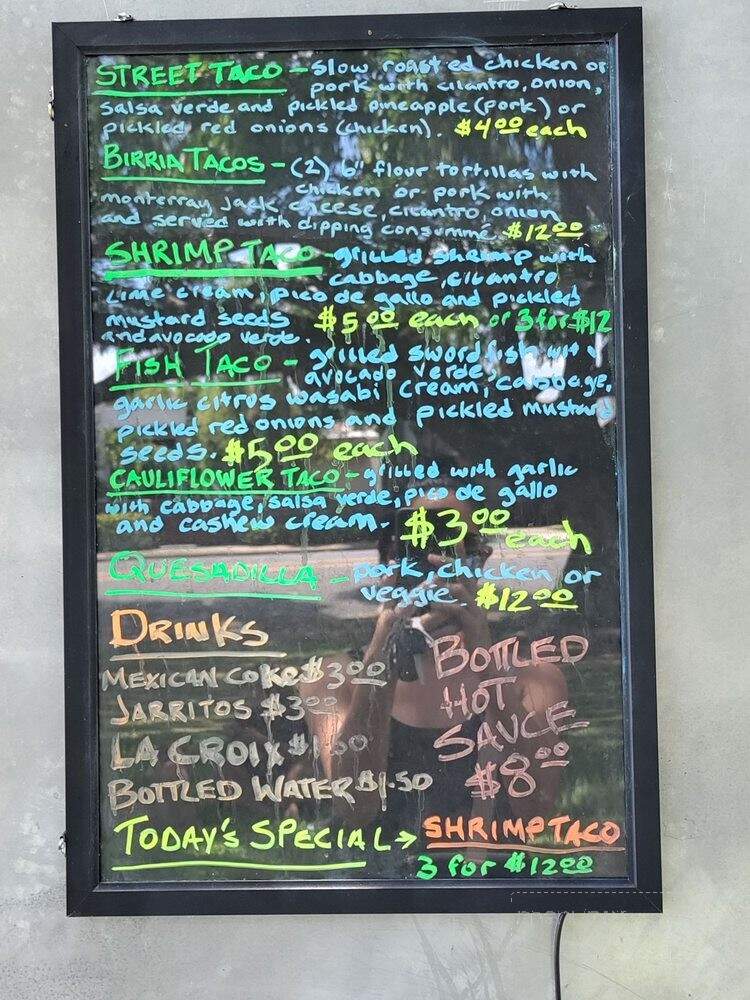 STREET TACO - slow roasted chicken or
pork with cilantro, onion,
salsa verde and pickled pineapple (pork) or
pickled red onions (chicken). $4.00 each
BIRRIA TACOS - (2) 6" flour tortillas with
chicken or pork with
monterray jack cheese, cilantro, onion
and served with dipping consumme $12.00
SHRIMP TACO - grilled shrimp with
cabbage, cilantro
lime cream, pico de gallo and pickled
mustard seeds $5.00 each or 3 for $12
and avocado verde.
FISH TACO - grilled swordfish with
avocado verde,
garlic citrus wasabi cream, cabbage,
pickled red onions and pickled mustard
seeds. $5.00 each
CAULIFLOWER TACO - grilled with garlic
with cabbage, salsa verde, pico de gallo
and cashew cream. $3.00 each
QUESADILLA - pork, chicken or
veggie. $12.00
DRINKS
MEXICAN COKE $3.00
JARRITOS $3.00
LA CROIX $1.00
BOTTLED WATER $1.50
BOTTLED
HOT
SAUCE
$8.00
TODAY'S SPECIAL → SHRIMP TACO
3 for $12.00